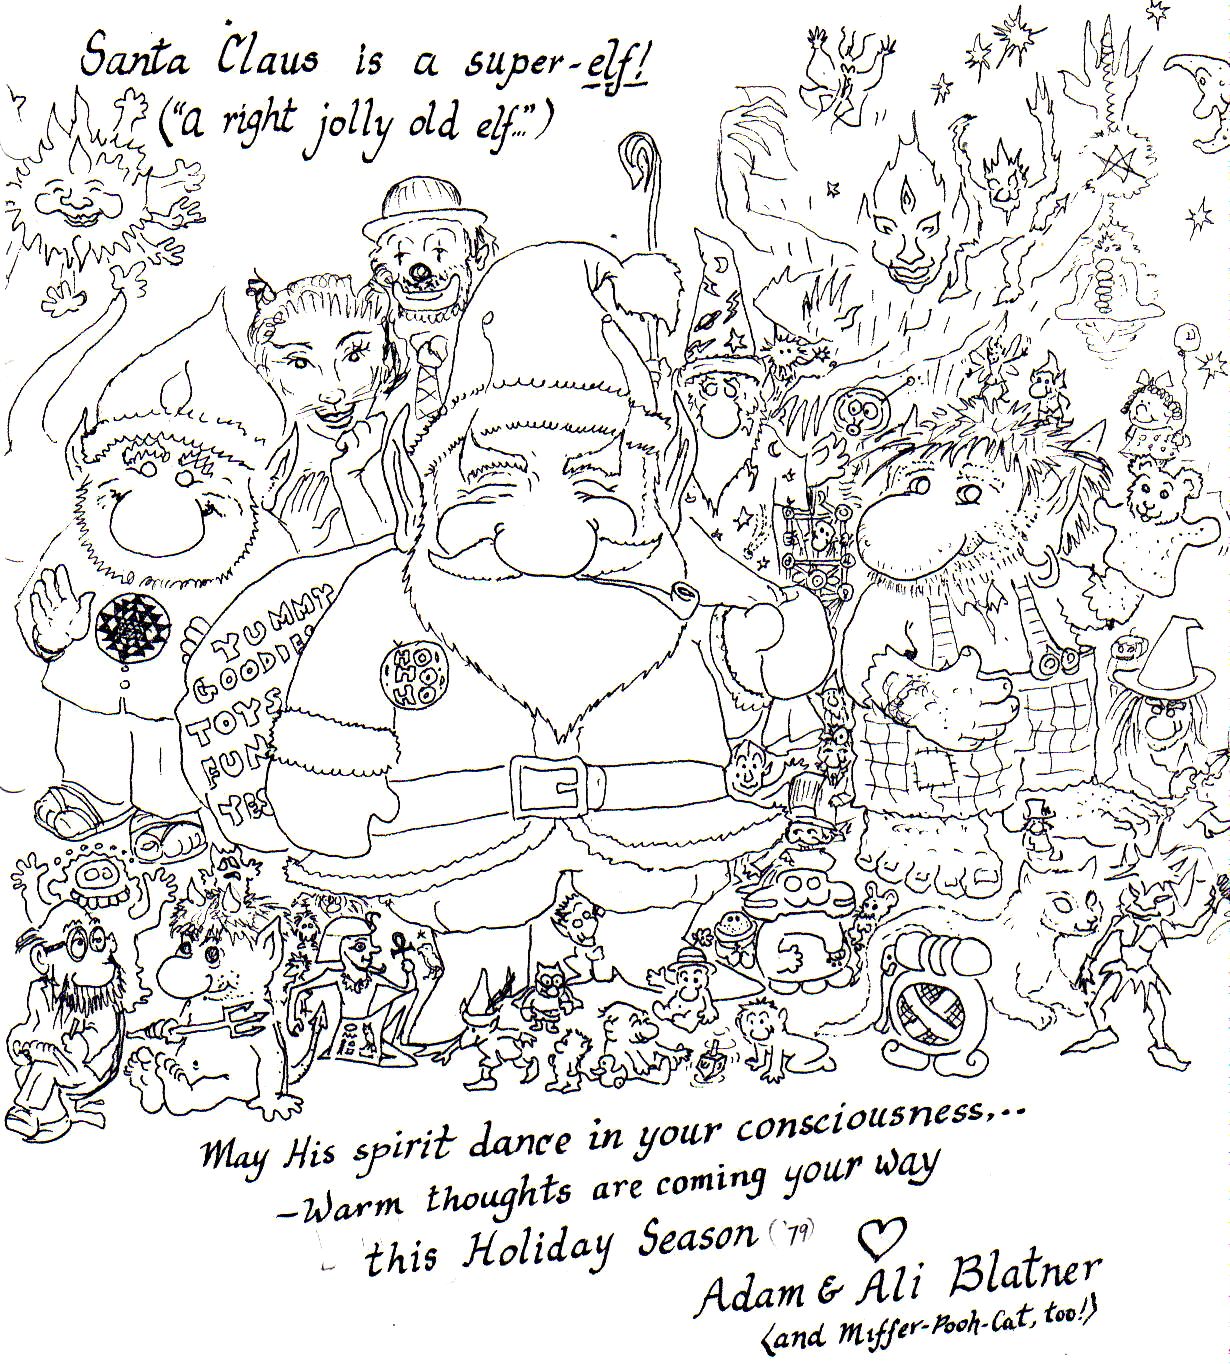 Santa Claus is a super-elf!
("a right jolly old elf...")
YUMMY
GOODIES
TOYS
FUN
YES
HO
HO
HO
May His spirit dance in your consciousness,...
-Warm thoughts are coming your way
this Holiday Season ('79)
Adam & Ali Blatner
(and Miffer-Pooh-Cat, too!)